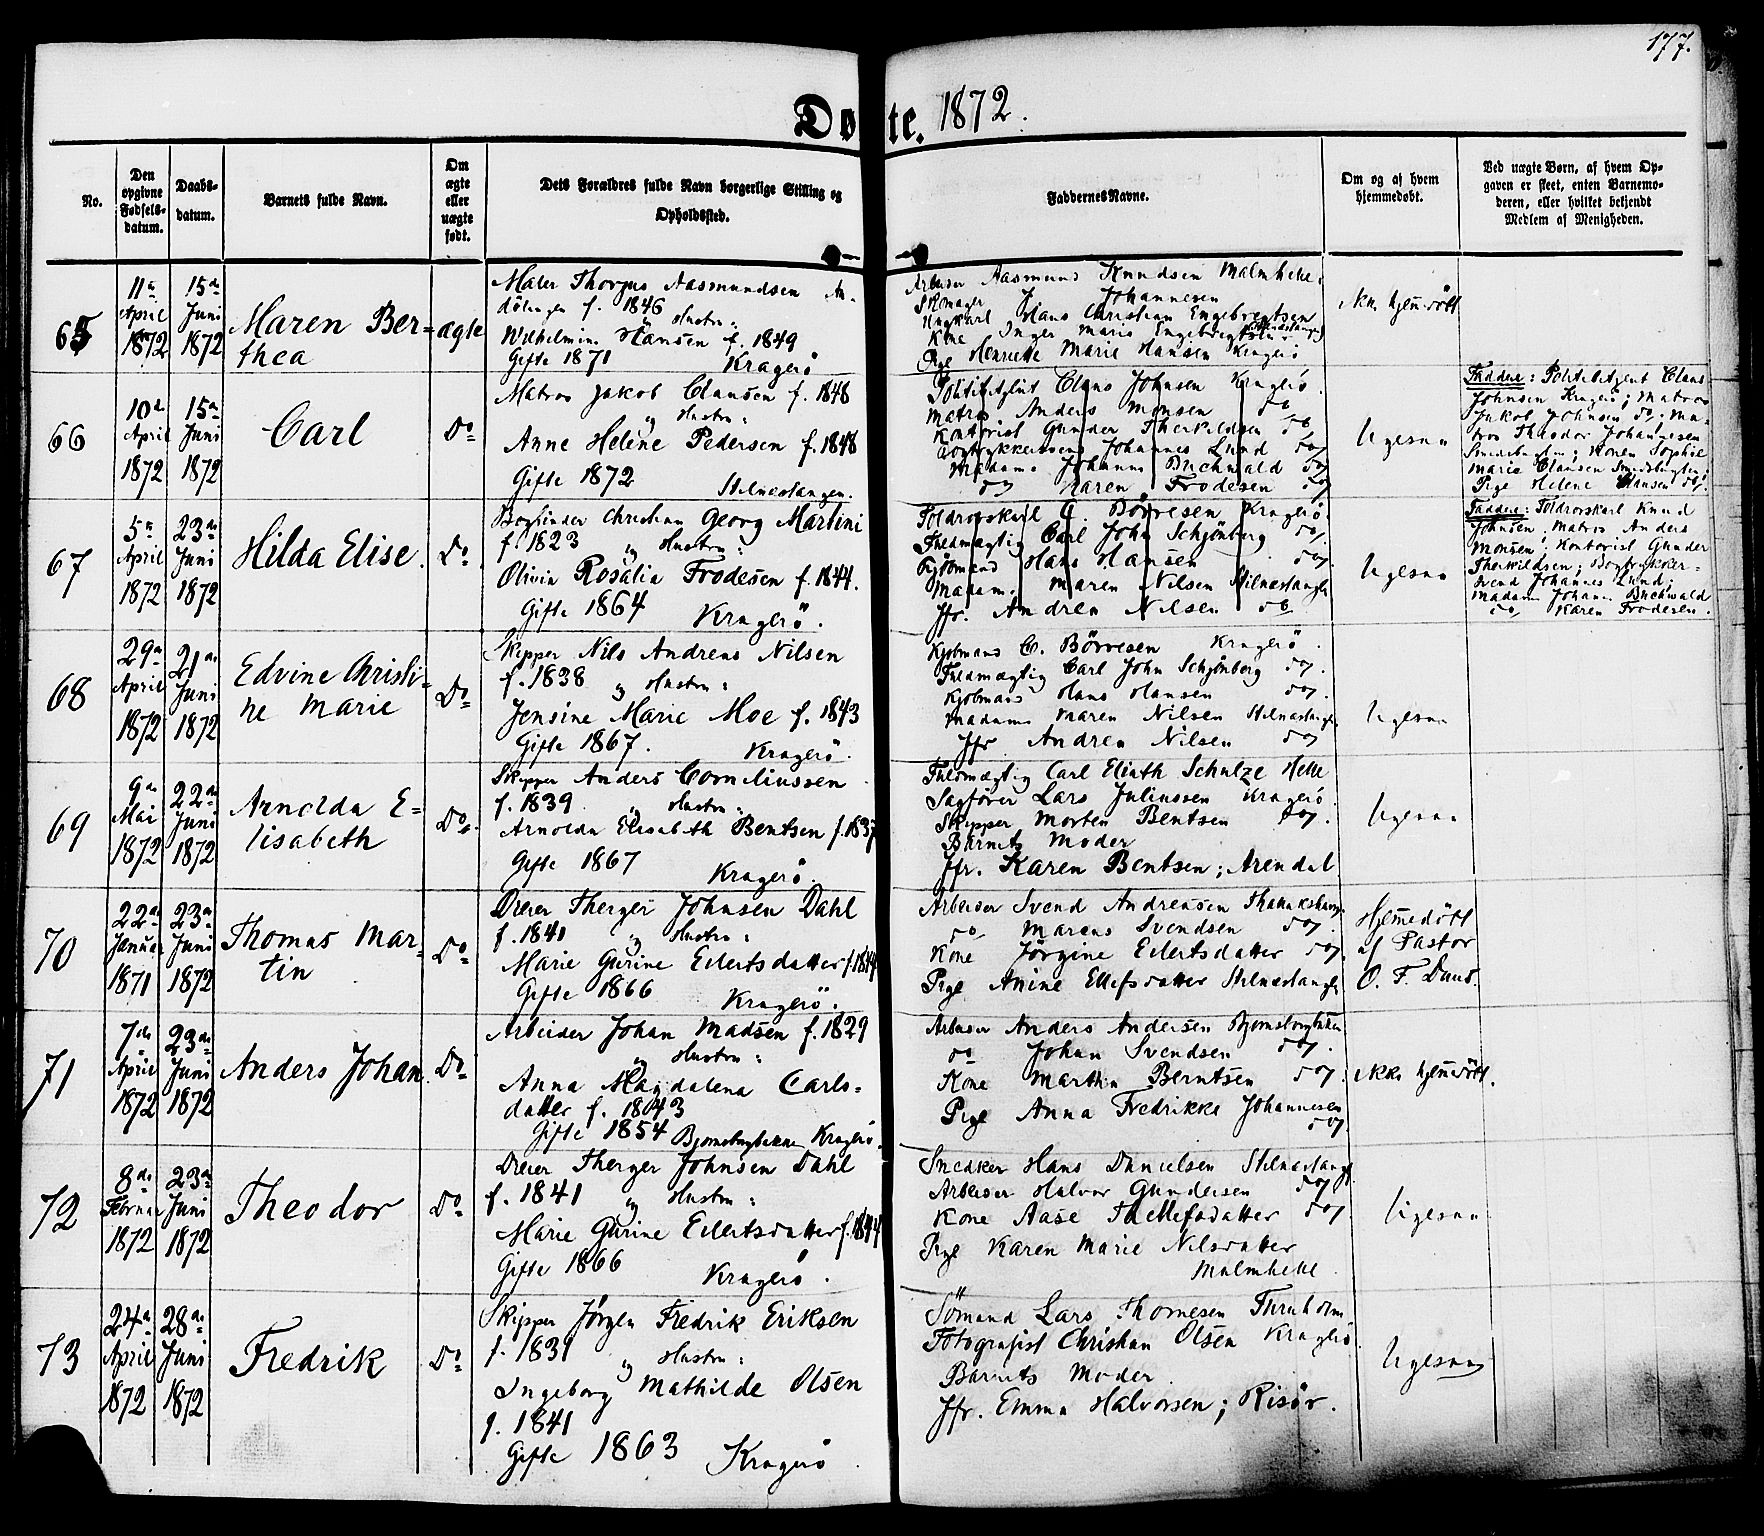 177.
Døbte. 1872.
No.
Den opgivne Fødselsdatum.
Daabsdatum.
Barnets fulde Navn.
Om ægte eller uægte født.
Dets Forældres fulde Navn borgerlige Stilling og Opholdssted.
Faddernes Navne.
Om og af hvem hjemmedøbt.
Ved uægte Børn, af hvem Opgaven er skeet, enten Barnemoderen, eller hvilket bekjendt Medlem af Menigheden.
65
11te April 1872
15de Juni 1872
Maren Ber-
thea
ægte
Maler Thorgus Aasmundsen
f. 1846
og Hustru:
Wilhelmine Hansen f. 1849
Gifte 1871 Kragerö
Arbeider Aasmund Knudsen Malmhele
Skomager J Johannesen
Ungkarl Hans Christian Engebregtsen
Kone Inger Marie Engebregtsen
Pige Henriette Marie Hansen Kragerö
ikke hjemdöbt
66
10de April 1872
15de Juni 1872
Carl
Do
Matros Jakob Clausen f. 1848
og Hustru:
Anne Helene Pedersen f. 1848
Gifte 1872 Stilnestangen.
Politibetjent Claus Johnsen Kragerö.
Matros Anders Monsen do
Kontorist Gunder Therkildsen do
Bogtrykkersvend Johannes Lund do
Madame Johanne Buchwald do
do Karen Frodesen do
ligesaa
Faddere: Politibetjent Claus
Johnsen Kragerö; Matros
Jakob Johnsen do; Ma-
tros Theodor Johannesen
Smedsbugten; Konen Sophie
Marie Clausen Smedsbugten;
Pige Helene Clausen do.
67
5te April 1872
23de Juni 1872
Hilda Elise.
Do
Bogbinder Christian Georg Martini
f. 1823 og Hustru:
Olivia Rosalia Frodesen f. 1844.
Gifte 1864 Kragerö.
Toldrorskarl C. Börresen Kragerö.
Fuldmægtig Carl John Schjönberg do.
Kjöbmand Hans Hansen do
Madame Maren Nilsen Stilnestangen
Jfr. Andrea Nilsen do
ligesaa
Faddere: Toldrorskarl Knud
Johnsen, Matros Anders
Monsen; Kontorist Gunder
Therkildsen; Bogtrykker-
svend Johannes Lund;
Madam Johan. Buchwald
do, Karen Frodesen.
68
29de April 1872
21de Juni 1872
Edvine Christi-
ne Marie
Do
Skipper Nils Andreas Nilsen
f. 1838 og Hustru:
Jensine Marie Moe f. 1843
Gifte 1867. Kragerö.
Kjöbmand C. Börresen Kragerö.
Fuldmægtig Carl John Schjönberg do.
Kjöbmand Hans Hansen do.
Madame Maren Nilsen Stilnestangen
Jfr. Andrea Nilsen do
ligesaa
69
9de Mai 1872
22de Juni 1872
Arnolda E-
lisabeth
Do
Skipper Anders Corneliussen
f. 1839 og Hustru:
Arnolda Elisabeth Bentsen f. 1837
Gifte 1867 Kragerö.
Fuldmægtig Carl Eliath Schulze Helle
Sagförer Lars Juliussen Kragerö.
Skipper Morten Bentsen do.
Barnets Moder
Jfr. Karen Bentsen; Arendal
ligesaa
70
22de Januar 1871
23de Juni 1872
Thomas Mar-
tin
Do
Dreier Therger Johnsen Dahl
f. 1841 og Hustru:
Marie Gurine Eilertsdatter f. 1844
Gifte 1866 Kragerö.
Arbeider Svend Andreasen
do Marcus Svendsen do.
Kone Jörgine Eilertsdatter do
Pige Anine Ellefsdatter Stilnestangen
Hjemedöbt
af Pastor
O. F. Daus.
71
7de April 1872
23de Juni 1872
Anders Johan
Do
Arbeider Johan Madsen f. 1829
og Hustru:
Anna Magdalena Carls-
datter f. 1843
Gifte 1854 Bjornsbugbakken Kragerö.
Arbeider Anders Andersen
do Johan Svendsen do.
Kone Marthe Berntsen do.
Pige Anna Fredrikke Johannesen
do
ikke hjemdöbt.
72
8de Februar 1872
23de Juni 1872
Theodor
Do
Dreier Therger Johnsen Dahl
f. 1841 og Hustru:
Marie Gurine Eilertsdatter f. 1844
Gifte 1866 Kragerö.
Snedker Hans Danielsen Stilnestangen
Arbeider Halvor Gundersen do
Kone Aase Thellefsdatter do
Pige Karen Marie Nilsdatter
Malmhele
ligesaa
73
24de April 1872
28de Juni 1872
Fredrik
Do
Skipper Jörgen Fredrik Eriksen
f. 1831 og Hustru:
Ingeborg Mathilde Olsen
f. 1841
Gifte 1863 Kragerö
Sömand Lars Thomesen Furuholm
Fotografist Christian Olsen Kragerö
Barnets Moder
Jfr. Emma Halvorsen; Risör.
ligesaa